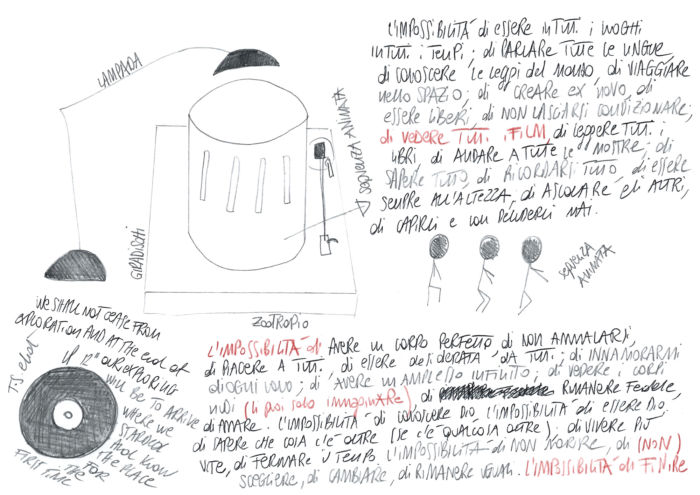 L'IMPOSSIBILITÀ di essere in TUTTI i LUOGHI
in TUTTI i TEMPI; di PARLARE TUTTE LE LINGUE,
di CONOSCERE le leggi del MONDO, di VIAGGIARE
nello SPAZIO; di CREARE EX NOVO, di
essere LIBERI, di NON LASCIARSI CONDIZIONARE;
di VEDERE TUTTI i FILM, di leggere TUTTI i
LIBRI, di ANDARE A TUTTE le MOSTRE; di
SAPERE TUTTO, di RICORDARSI TUTTO, di essere
SEMPRE ALL'ALTEZZA, di ASCOLTARE gli ALTRI,
di CAPIRLI e non DELUDERLI MAI.
LAMPADA
SEQUENZA ANIMATA
GIRADISCHI
ZOOTROPIO
SEQUENZA
ANIMATA
WE SHALL NOT CEASE FROM
EXPLORATION AND AT THE END OF
OUR EXPLORING
WILL BE TO ARRIVE
WHERE WE
STARTED
AND KNOW
THE PLACE
FOR
THE
FIRST TIME
T.S. eliot
L'IMPOSSIBILITÀ di AVERE UN CORPO PERFETTO di NON AMMALARSI,
di PIACERE A TUTTI, di essere desiderata DA TUTTI; di INNAMORARMI
di OGNI UOMO; di AVERE UN AMPLESSO INFINITO; di VEDERE i CORPI
NUDI (li puoi solo immaginare), di RIMANERE Fedele,
di AMARE. L'IMPOSSIBILITÀ di CONOSCERE DIO. L'IMPOSSIBILITÀ di ESSERE DIO.
di SAPERE CHE COSA C'È OLTRE (SE C'È QUALCOSA OLTRE). di VIVERE PIÙ
VITE, di FERMARE il TEMPO. L'IMPOSSIBILITÀ di NON MORIRE, di (NON)
SCEGLIERE, di CAMBIARE, di RIMANERE UGUALI. L'IMPOSSIBILITÀ di FINIRE